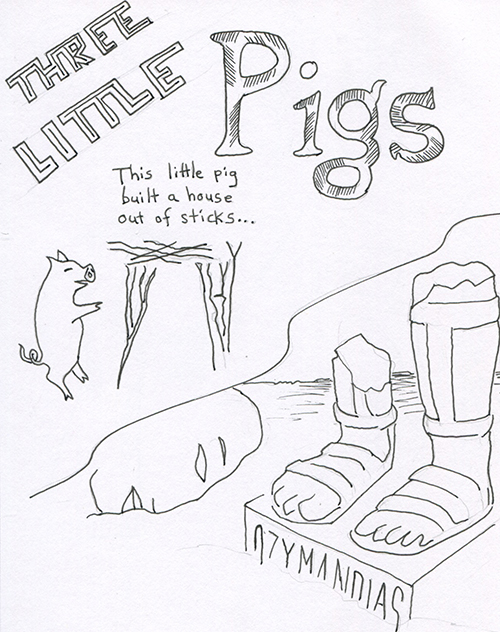 THREE
LITTLE
Pigs
This little pig
built a house
out of sticks...
OZYMANDIAS